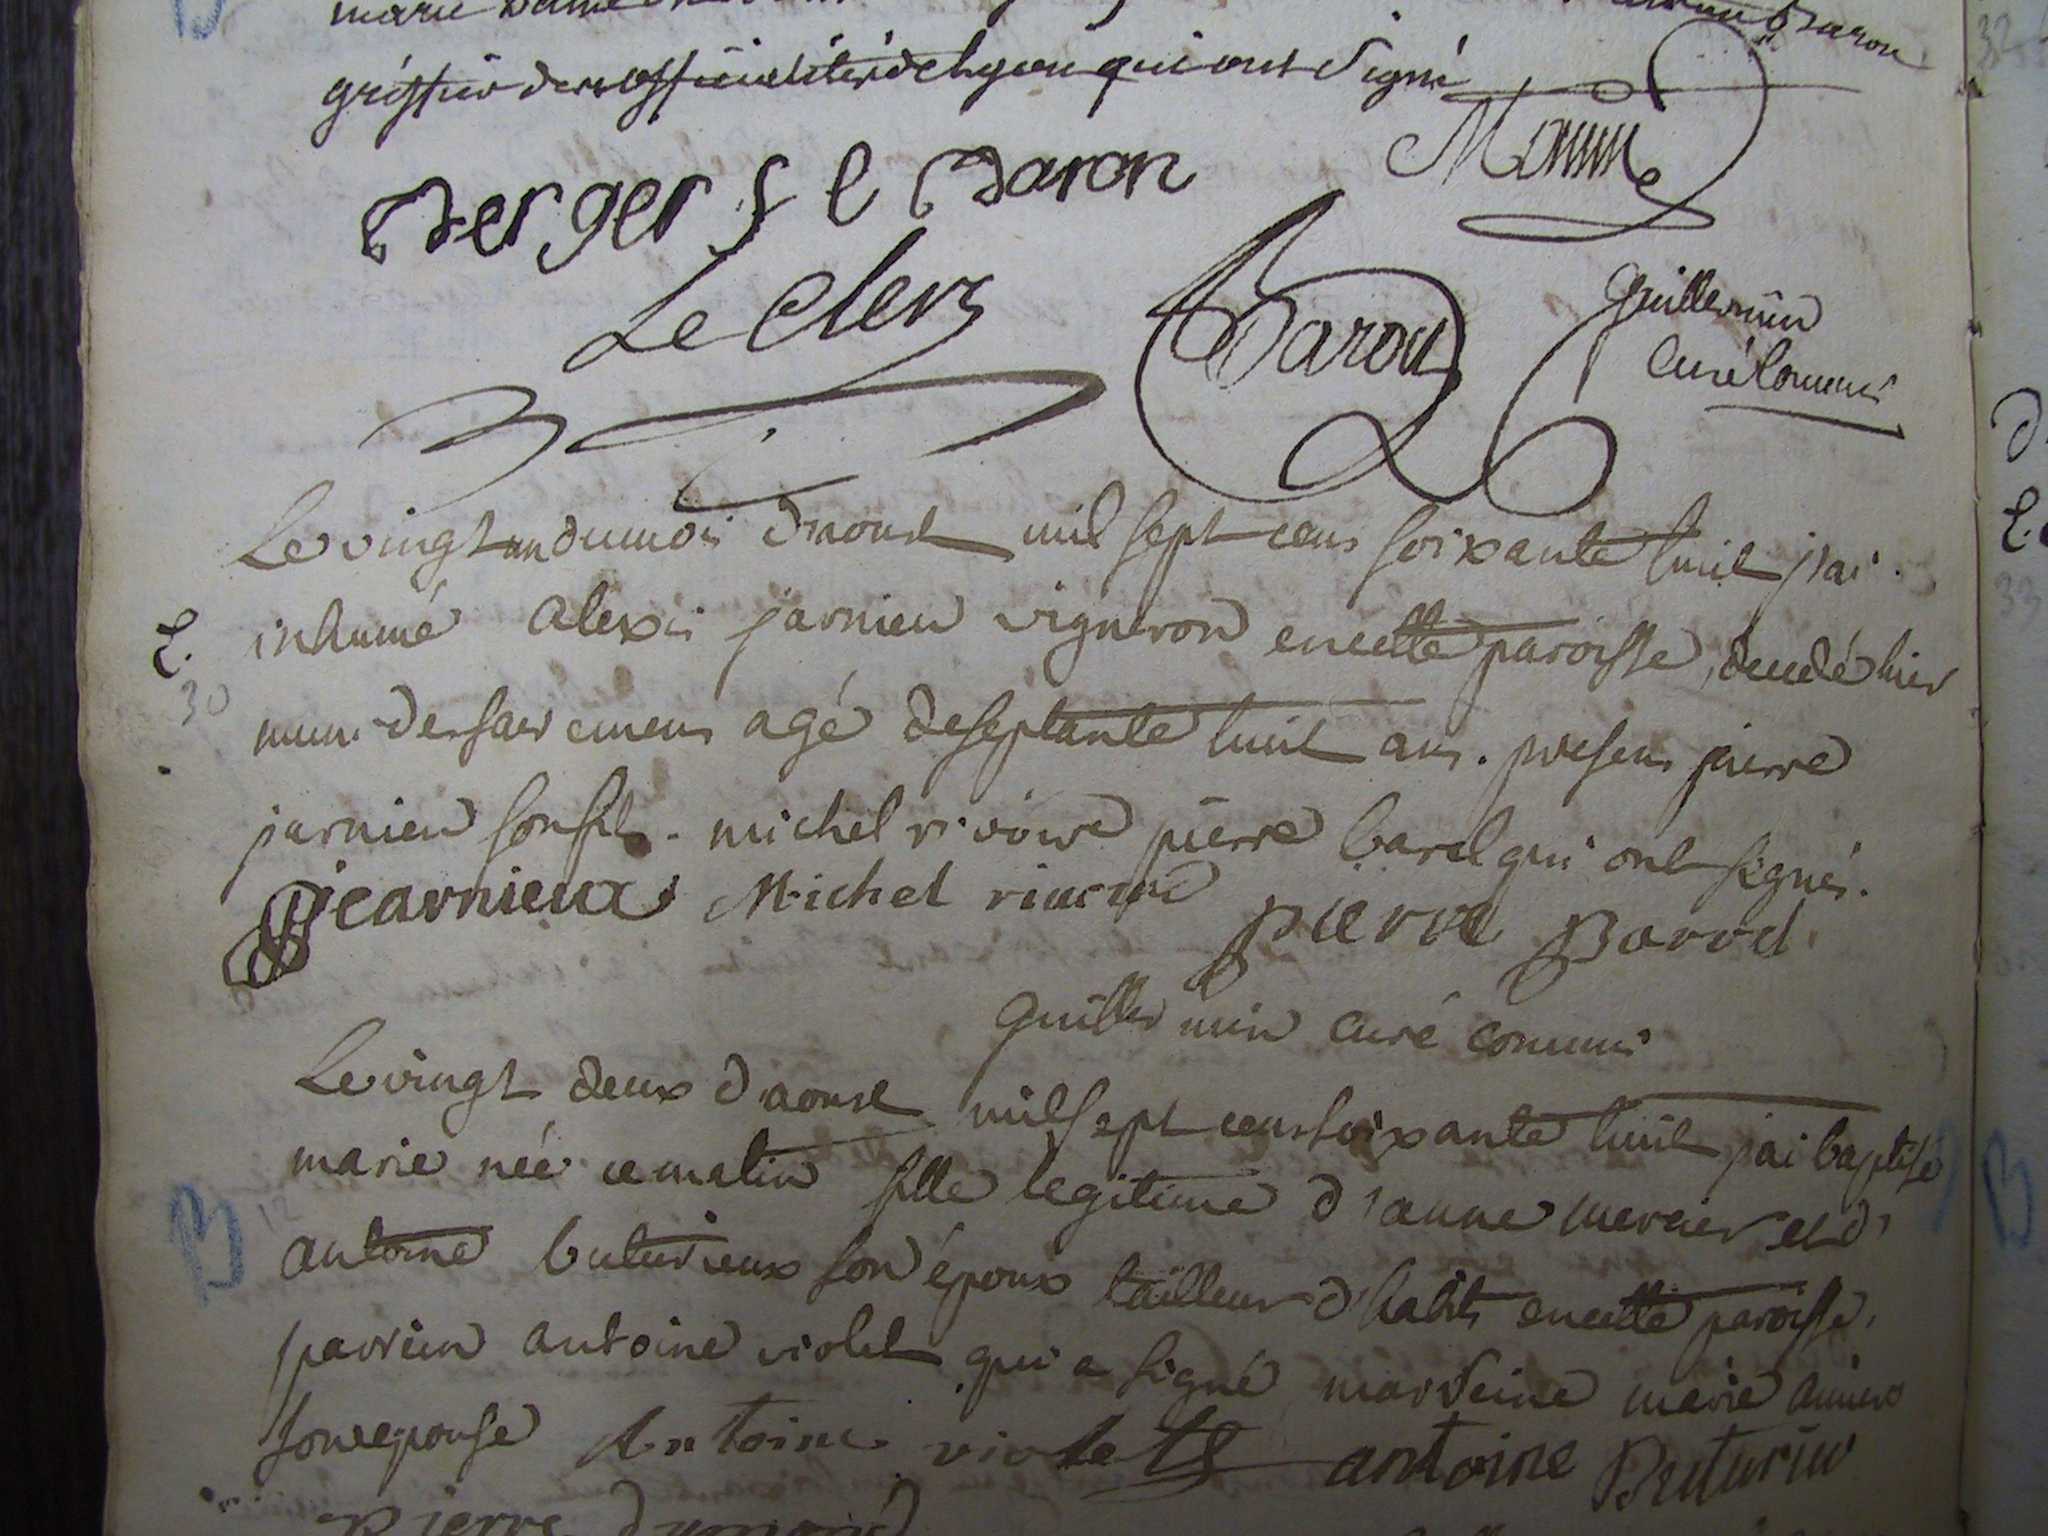 marie
greffier des officialités de Lyon qui ont signé
Berger f e Baron
Le Clerc
Baron
guillermin
curé commis
Le vingt un du mois d'aoust mil sept cens soixante huit j'ai
E. inhumé alexis jarnieu vigneron en cette paroisse, decedé hier
30
muni des sacremens agé de septante huit ans. presens pierre
jarnieu son fils. michel rivoire pierre barel qui ont signés.
jearnieux Michel rivoire pierre Barrel
guillermin curé commis
Le vingt deux d'aoust mil sept cens soixante huit j'ai baptisé
marie née ce matin fille legitime d'anne mercier et d'
B 12
antoine buturieux son époux tailleur d'habits en cette paroisse,
parrein antoine violet qui a signé marreine marie
son epouse Antoine violet antoine Buturieu
pierre